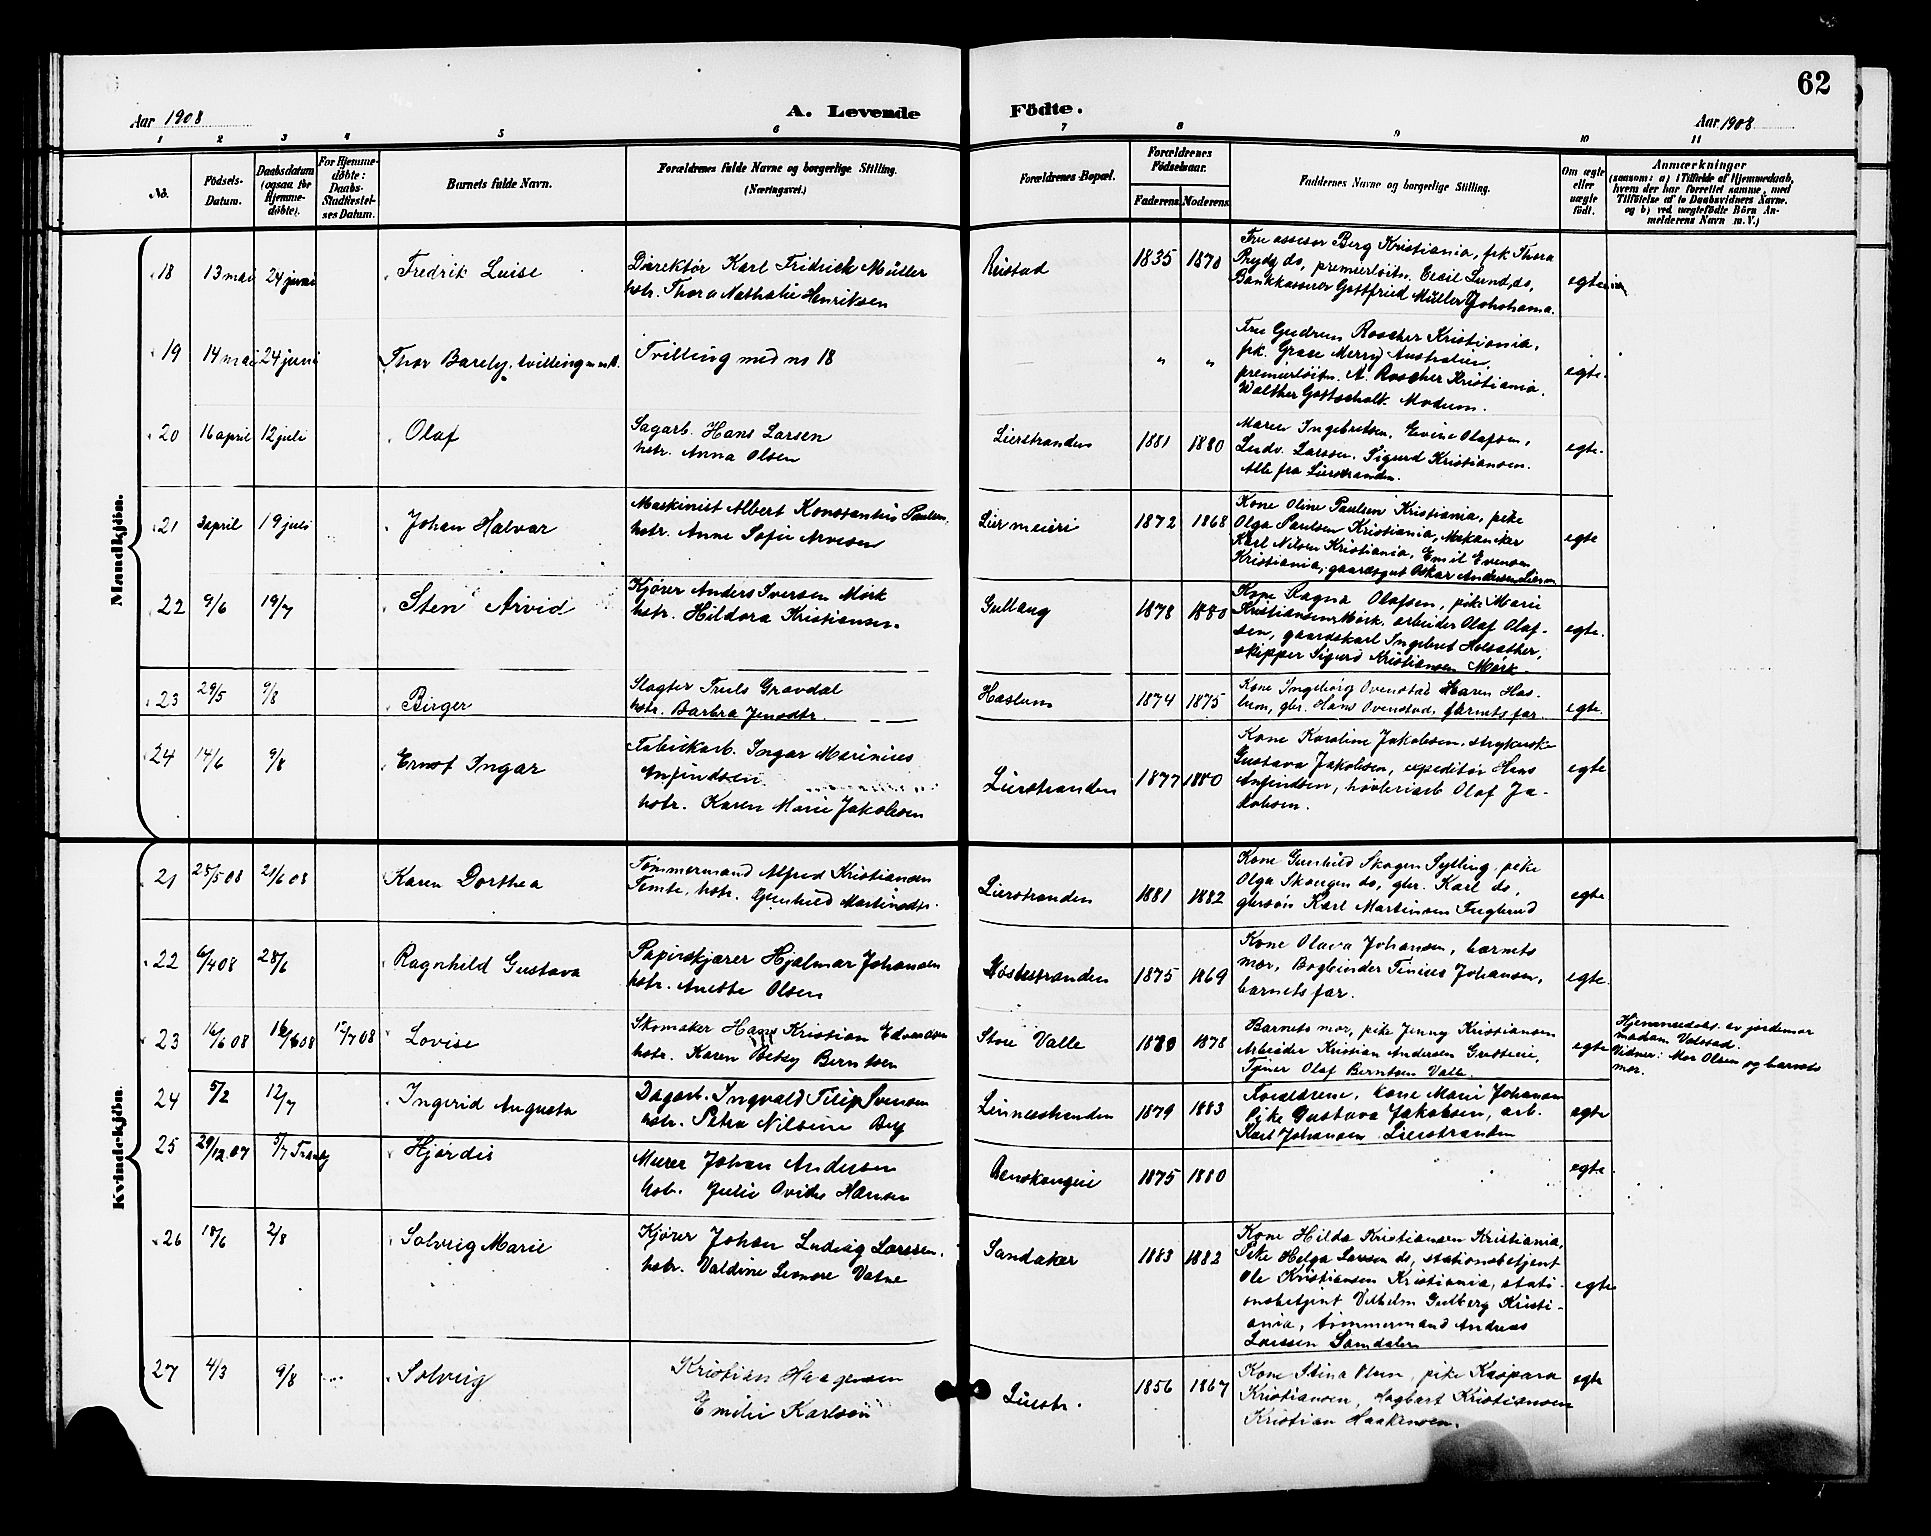 62
Aar 1908
A. Levende
Födte.
Aar 1908
1 2 3 4 5 6 7 8 9 10 11
No.
Födsels-
Datum.
Daabsdatum
(ogsaa for
Hjemme-
döbte).
For Hjemme-
döbte:
Daabs-
Stadfæstel-
ses Datum.
Barnets fulde Navn.
Forældrenes fulde Navne og borgerlige Stilling.
(Næringsvei.)
Forældrenes Bopæl.
Forældrenes
Födselsaar.
Faderens
Moderens
Faddernes Navne og borgerlige Stilling.
Om ægte
eller
uægte
födt.
Anmærkninger
(saasom: a) i Tilfælde af Hjemmedaab,
hvem der har forrettet samme, med
Tilföielse af to Daabsvidners Navne,
og b) ved uægtefödte Börn An-
melderens Navn m. V.)
Mandkjön.
18 13 mai 24 juni
Fredrik Luise
Direktör Karl Fridrick Müller
hstr. Thora Nathalie Henriksen
1835 1870
Fru assesor Berg Kristiania, frk Thora
do, premierløitn. Lund do,
Bankkasserer Gottfried Müller
egte
19 14 mai 24 juni
Thor Barely, tvilling m. no 18.
Tvilling med no 18
" "
Fru Gudrun Roscher Kristiania,
frk. Grace Merry Australien,
premierløitn. A. Roscher Kristiania.
Walther Gottschalk Modum.
egte.
20 16 april 12 juli
Olaf
Sagarb. Hans Larsen
hstr. Anna Olsen
Lierstranden
1881 1880
Maren Ingebretsen, Evine Olafsen,
Ludv. Larssen, Sigurd Kristiansen.
Alle fra Lierstranden.
egte.
21 3 april 19 juli
Johan Halvar
Maskinist Albert Konstantin Paulsen,
hstr. Anne Sofie Arvesen
Lier meieri
1872 1868
Kone Oline Paulsen Kristiania, pike
Olga Paulsen Kristiania, Mekaniker
Karl Nilsen Kristiania, Emil Evensen
Kristiania, gaardsgut Oskar Andersen Lier
egte
22 9/6 19/7
Sten Arvid
Kjører Anders Iversen Mörk
hstr. Hildora Kristiansen.
Gullaug
1878 1880
Kone Ragna Olafsen, pike Marie
Kristiansen Mörk, arbeider Olaf Olaf-
sen, gaardskarl Ingebret Holsæther,
skipper Sigurd Kristiansen Mörk
egte.
23 29/5 9/8
Birger
Slagter Truls Gravdal
hstr. Barbra Jensdtr.
Haslum
1874 1875
Kone Ingeborg Ovenstad Maren Has-
lum, gbr. Hans Ovenstad, barnets far.
egte.
24 14/6 9/8
Ernst Ingar
Fabrikarb. Ingar Marinius
Anfindsen
hstr. Karen Marie Jakobsen
Lierstranden
1877 1880
Kone Karoline Jakobsen, strykerske
Gustava Jakobsen, expeditör Hans
Anfindsen, høvleriarb Olaf Ja-
kobsen.
egte
Kvindekjön.
21 28/5 08 21/6 08
Karen Dorthea
Tømmermand Alfred Kristiansen
Temte, hstr. Gunhild Martinsdtr.
Lierstranden
1881 1882
Kone Gunhild Skogen Sylling, pike
Olga Skougen do, gbr. Karl do,
gbrsøn Karl Martinsen Fuglerud
egte
22 6/4 08 28/6
Ragnhild Gustava
Papirskjærer Hjalmar Johansen
hstr. Anette Olsen
1875 1869
Kone Olava Johansen, barnets
mor, Bogbinder Tinius Johansen,
barnets far.
egte.
23 16/6 08 16/6 08 12/7 08
Lovise
Skomaker Hans Kristian Edvardsen
hstr. Karen Betsy Berntsen
Store Valle
1880 1878
Barnets mor, pike Jenny Kristiansen
Arbeider Kristian Andersen
Tjener Olaf Berntsen Valle.
egte
Hjemmedøbt av jordemor
madam Valstad.
Vidner: Mor Olsen og barnets
mor.
24 5/2 12/7
Ingerid Augusta
Dagarb. Ingvald Filip Svensen
hstr. Petra Nilsine Berg
1879 1883
Forældrene, kone Marie Johansen
Pike Gustava Jakobsen, arb.
Karl Johansen Lierstranden
egte
25 29/12 07 5/7 Tranby
Hjørdis
Murer Johan Andersen
hstr. Julie Ovidia Hansen
1875 1880
egte
26 18/6 2/8
Solveig Marie
Kjører Johan Ludvig Larssen.
hstr. Valdine Leonore Vatne
Sandaker
1883 1882
Kone Hilda Kristiansen Kristiania,
Pike Helga Larsen do, stationsbetjent
Ole Kristiansen Kristiania, stati-
onsbetjent Vilhelm Gulberg Kristi-
ania, tømmermand Andreas
Larssen Sandaker
egte
27 4/3 9/8
Solveig
Kristian Haagensen
Emilie Karlsen
Lierstr.
1856 1867
Kone Stina Olsen, pike Kaspara
Kristiansen, Hagbart Kristiansen
Kristian Haakensen.
egte